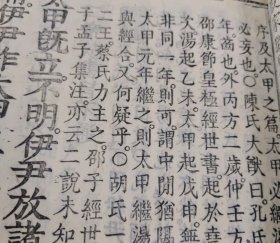 序及太甲之篇太甲
必妄也○陳氏大猷曰孔氏
年崩也外丙方二歲仲壬
邵康節皇極經世書起於堯
文湯起乙未太甲起戊申盖
非同一年則可謂中閒猶隔
太甲元年繼之則太甲繼湯
與經合又何疑乎○胡氏
二王蔡氏力主之邵子經世
于孟子集注亦云二說未知
太甲旣立不明伊尹放諸
伊尹作太甲